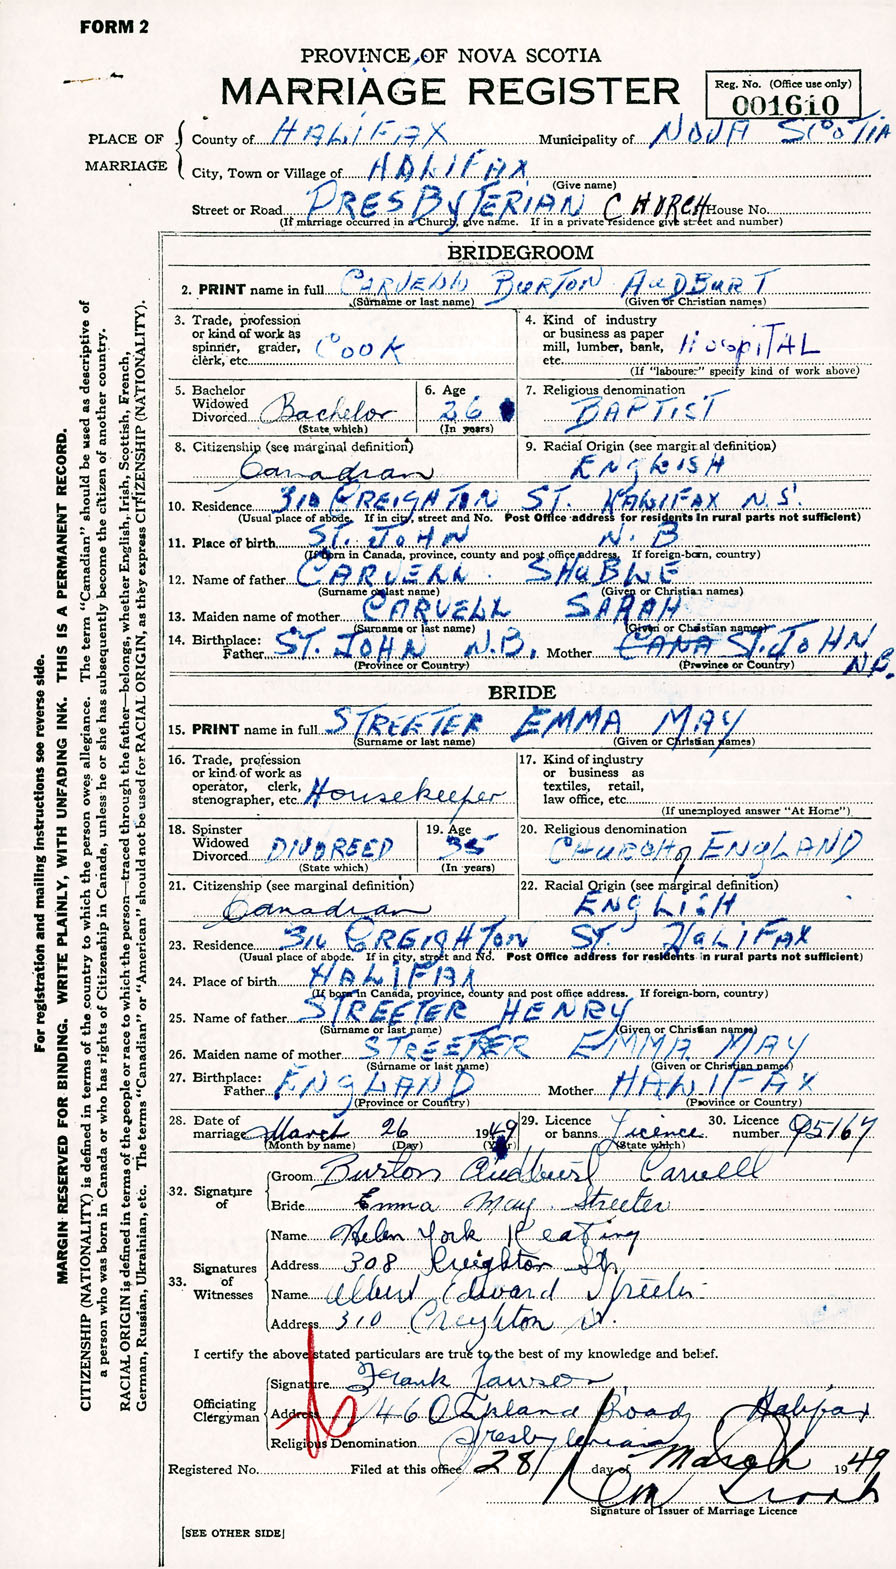 FORM 2
PROVINCE OF NOVA SCOTIA
MARRIAGE REGISTER
Reg. No. (Office use only)
001610
PLACE OF MARRIAGE
County of HALIFAX Municipality of NOVA SCOTIA
City, Town or Village of HALIFAX
(Give name)
Street or Road PRESBYTERIAN CHURCH House No.
(If marriage occurred in a Church, give name. If in a private residence give street and number)
BRIDEGROOM
2. PRINT name in full CARVELL BURTON AUDBURT
(Surname or last name) (Given or Christian names)
3. Trade, profession or kind of work as spinner, grader, clerk, etc. COOK
4. Kind of industry or business as paper mill, lumber, bank, etc. HospITAL
(If "labourer" specify kind of work above)
5. Bachelor Widowed Divorced Bachelor
(State which)
6. Age 26
(In years)
7. Religious denomination
BAPTIST
8. Citizenship (see marginal definition)
Canadian
9. Racial Origin (see marginal definition)
ENGLISH
10. Residence 310 CREIGHTON ST. HALIFAX N.S.
(Usual place of abode. If in city, street and No. Post Office address for residents in rural parts not sufficient)
11. Place of birth ST. JOHN N.B
(If born in Canada, province, county and post office address. If foreign-born, country)
12. Name of father CARVELL SHUBLE
(Surname or last name) (Given or Christian names)
13. Maiden name of mother CARVELL SARAH
(Surname or last name) (Given or Christian names)
14. Birthplace: Father ST. JOHN N.B. Mother CANA ST. JOHN N.B.
(Province or Country) (Province or Country)
BRIDE
15. PRINT name in full STREETER EMMA MAY
(Surname or last name) (Given or Christian names)
16. Trade, profession or kind of work as operator, clerk, stenographer, etc. Housekeeper
17. Kind of industry or business as textiles, retail, law office, etc.
(If unemployed answer "At Home")
18. Spinster Widowed Divorced DIVOREED
(State which)
19. Age 35
(In years)
20. Religious denomination
CHURCH of ENGLAND
21. Citizenship (see marginal definition)
Canadian
22. Racial Origin (see marginal definition)
ENGLISH
23. Residence 310 CREIGHTON ST. HALIFAX
(Usual place of abode. If in city, street and No. Post Office address for residents in rural parts not sufficient)
24. Place of birth HALIFAX
(If born in Canada, province, county and post office address. If foreign-born, country)
25. Name of father STREETER HENRY
(Surname or last name) (Given or Christian names)
26. Maiden name of mother STREETER EMMA MAY
(Surname or last name) (Given or Christian names)
27. Birthplace: Father ENGLAND Mother HALIFAX
(Province or Country) (Province or Country)
28. Date of marriage March 26 1949
(Month by name) (Day) (Year)
29. Licence or banns Licence
(State which)
30. Licence number 95167
32. Signature of
Groom Burton Audburt Carvell
Bride Emma May Streeter
33. Signatures of Witnesses
Name Helen York Keating
Address 308 Creighton St.
Name Albert Edward Streeter
Address 310 Creighton St.
I certify the above stated particulars are true to the best of my knowledge and belief.
Officiating Clergyman
Signature Frank Lawson
Address 146 Oakland Road Halifax
Religious Denomination Presbyterian
Registered No. Filed at this office 28 day of March 1949
Signature of Issuer of Marriage Licence
[SEE OTHER SIDE]
For registration and mailing instructions see reverse side.
MARGIN RESERVED FOR BINDING. WRITE PLAINLY, WITH UNFADING INK. THIS IS A PERMANENT RECORD.
CITIZENSHIP (NATIONALITY) is defined in terms of the country to which the person owes allegiance. The term "Canadian" should be used as descriptive of
a person who was born in Canada or who has rights of Citizenship in Canada, unless he or she has subsequently become the citizen of another country.
RACIAL ORIGIN is defined in terms of the people or race to which the person—traced through the father—belongs, whether English, Irish, Scottish, French,
German, Russian, Ukrainian, etc. The terms "Canadian" or "American" should not be used for RACIAL ORIGIN, as they express CITIZENSHIP (NATIONALITY).